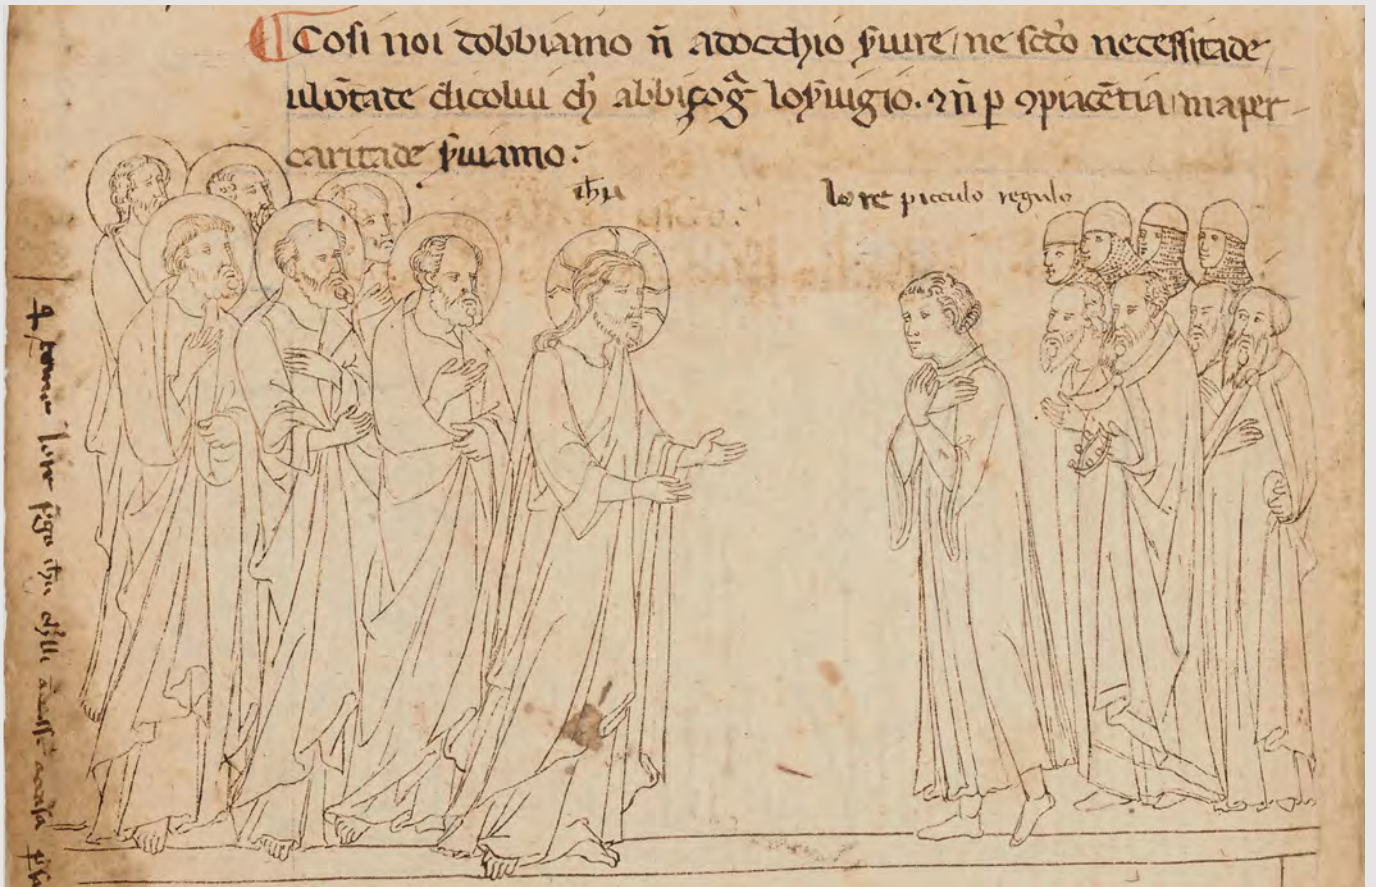 Cosi noi dobbiamo ñ adocchio s̃uire / ne scđo necessitade
uolõtate dicolui cħ abbisogñ lo s̃uigio. ⁊ ñ ꝑ ꝯpiacẽtia / ma per
caritade s̃uiamo:
ihu
lo re picculo regulo
come lo re p̃ga ihu